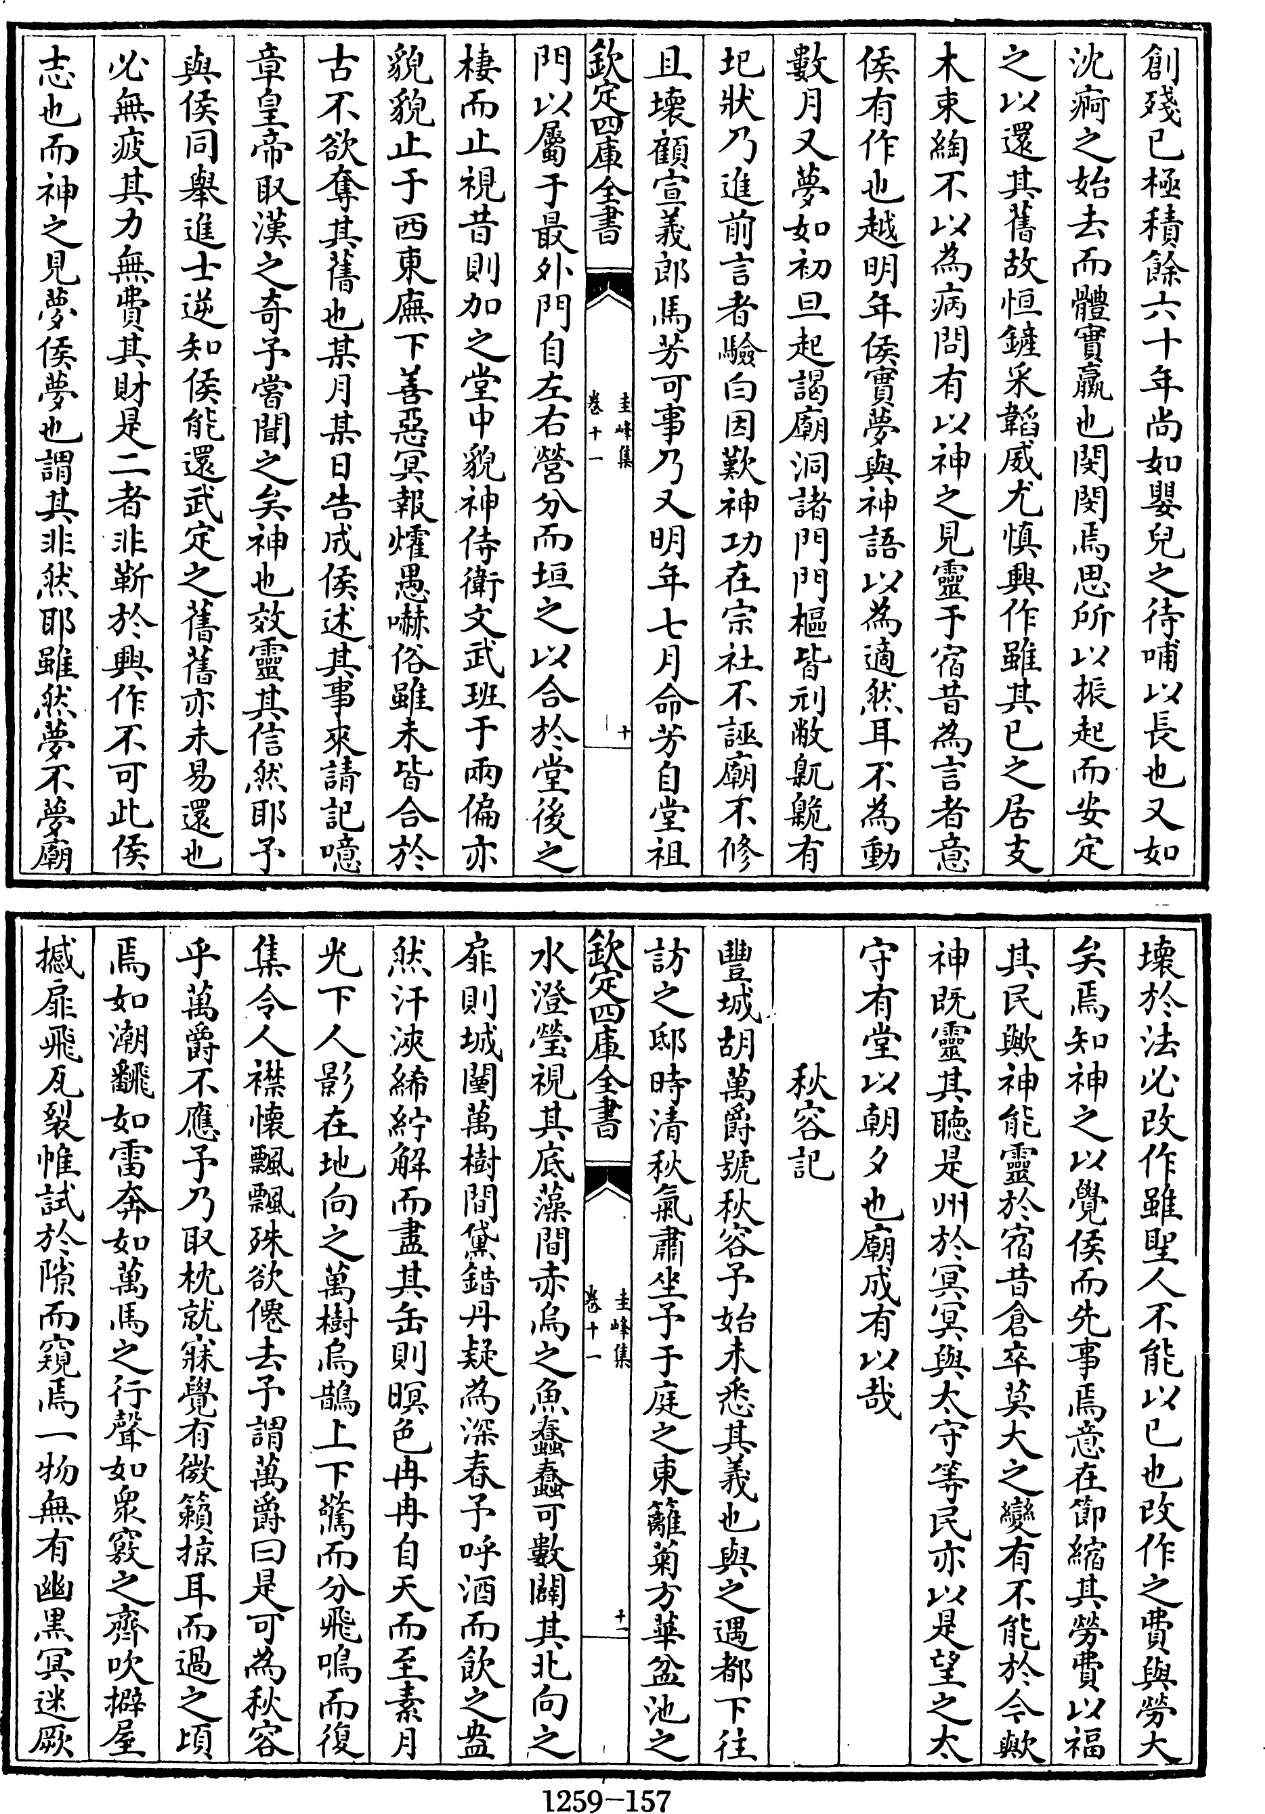 創殘已極積餘六十年尚如嬰兒之待哺以長也又如
沈痾之始去而體實羸也閔閔焉思所以振起而安定
之以還其舊故恒鏟采韜威尤慎興作雖其已之居支
木束綯不以為病問有以神之見靈于宿昔為言者意
侯有作也越明年侯實夢與神語以為適然耳不為動
數月又夢如初旦起謁廟洞諸門門樞皆刓敝臲卼有
圯狀乃進前言者驗白因歎神功在宗社不誣廟不修
且壞顧宣義郎馬芳可事乃又明年七月命芳自堂祖
欽定四庫全書
圭峰集
卷十一
十
門以屬于最外門自左右營分而垣之以合於堂後之
棲而止視昔則加之堂中貌神侍衛文武班于兩偏亦
貌貌止于西東廡下善惡冥報燿愚嚇俗雖未皆合於
古不欲奪其舊也某月某日告成侯述其事來請記噫
章皇帝取漢之奇予嘗聞之矣神也效靈其信然耶予
與侯同舉進士逆知侯能還武定之舊舊亦未易還也
必無疲其力無費其財是二者非靳於興作不可此侯
志也而神之見夢侯夢也謂其非然耶雖然夢不夢廟
壞於法必改作雖聖人不能以已也改作之費與勞大
矣焉知神之以覺侯而先事焉意在節縮其勞費以福
其民歟神能靈於宿昔倉卒莫大之變有不能於今歟
神既靈其聽是州於冥冥與太守等民亦以是望之太
守有堂以朝夕也廟成有以哉
秋容記
豐城胡萬爵號秋容予始未悉其義也與之遇都下往
訪之邸時清秋氣肅坐予于庭之東籬菊方華盆池之
欽定四庫全書
圭峰集
卷十一
十一
水澄瑩視其底藻間赤烏之魚蠢蠢可數闢其北向之
扉則城闉萬樹間黛錯丹疑為深春予呼酒而飲之盎
然汗浹絺紵解而盡其缶則暝色冉冉自天而至素月
光下人影在地向之萬樹烏鵲上下驚而分飛鳴而復
集令人襟懷飄飄殊欲僊去予謂萬爵曰是可為秋容
乎萬爵不應予乃取枕就寐覺有微籟掠耳而過之頃
焉如潮翻如雷奔如萬馬之行聲如衆竅之齊吹擗屋
撼扉飛瓦裂帷試於隙而窺焉一物無有幽黒冥迷厥
1259-157